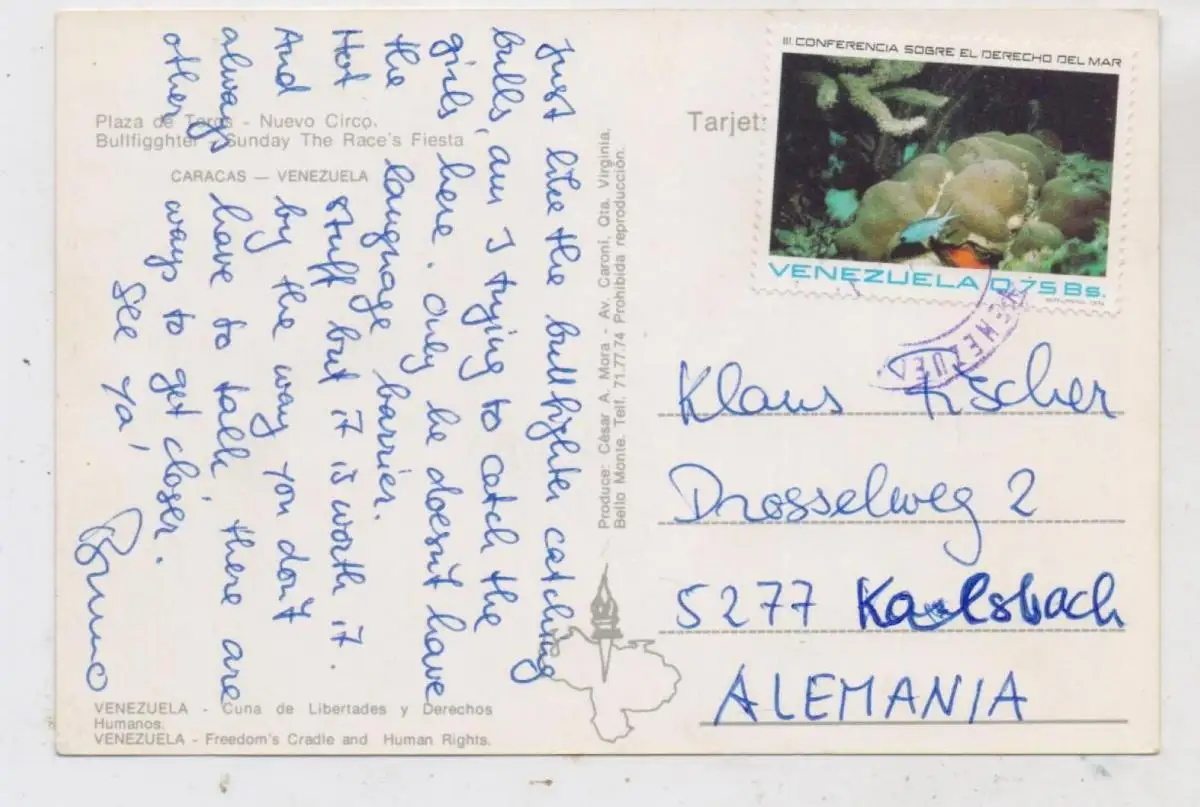 Plaza de Toros - Nuevo Circo.
Bullfigghter - Sunday The Race's Fiesta
CARACAS — VENEZUELA
Just like the bullfighter catching
bulls, am I trying to catch the
girls here. Only he doesn't have
the language barrier.
Hot stuff but it is worth it.
And by the way you don't
always have to talk, there are
other ways to get closer.
See ya!
Bruno
VENEZUELA - Cuna de Libertades y Derechos
Humanos.
VENEZUELA - Freedom's Cradle and Human Rights.
Produce: Cèsar A. Mora - Av. Caroní, Qta. Virginia,
Bello Monte. Telf. 71.77.74 Prohibida reproducción.
Tarjet
III CONFERENCIA SOBRE EL DERECHO DEL MAR
VENEZUELA 0,75 Bs.
VENEZUELA
Klaus Fischer
Drosselweg 2
5277 Karlsbach
ALEMANIA